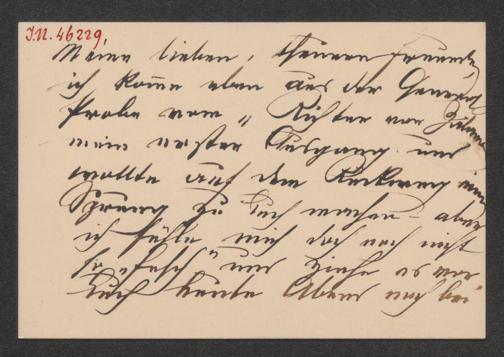 I.N. 46229.
Meine lieben, theueren Freunde,
ich komme eben aus der General
Probe vom „Richter von Zalamea
mein erster Ausgang und
wollte auf dem Rückweg einen
Sprung zu Euch machen – aber
ich fühle mich doch noch nicht
so „fesch" und ziehe es vor
Euch heute Abend noch bei